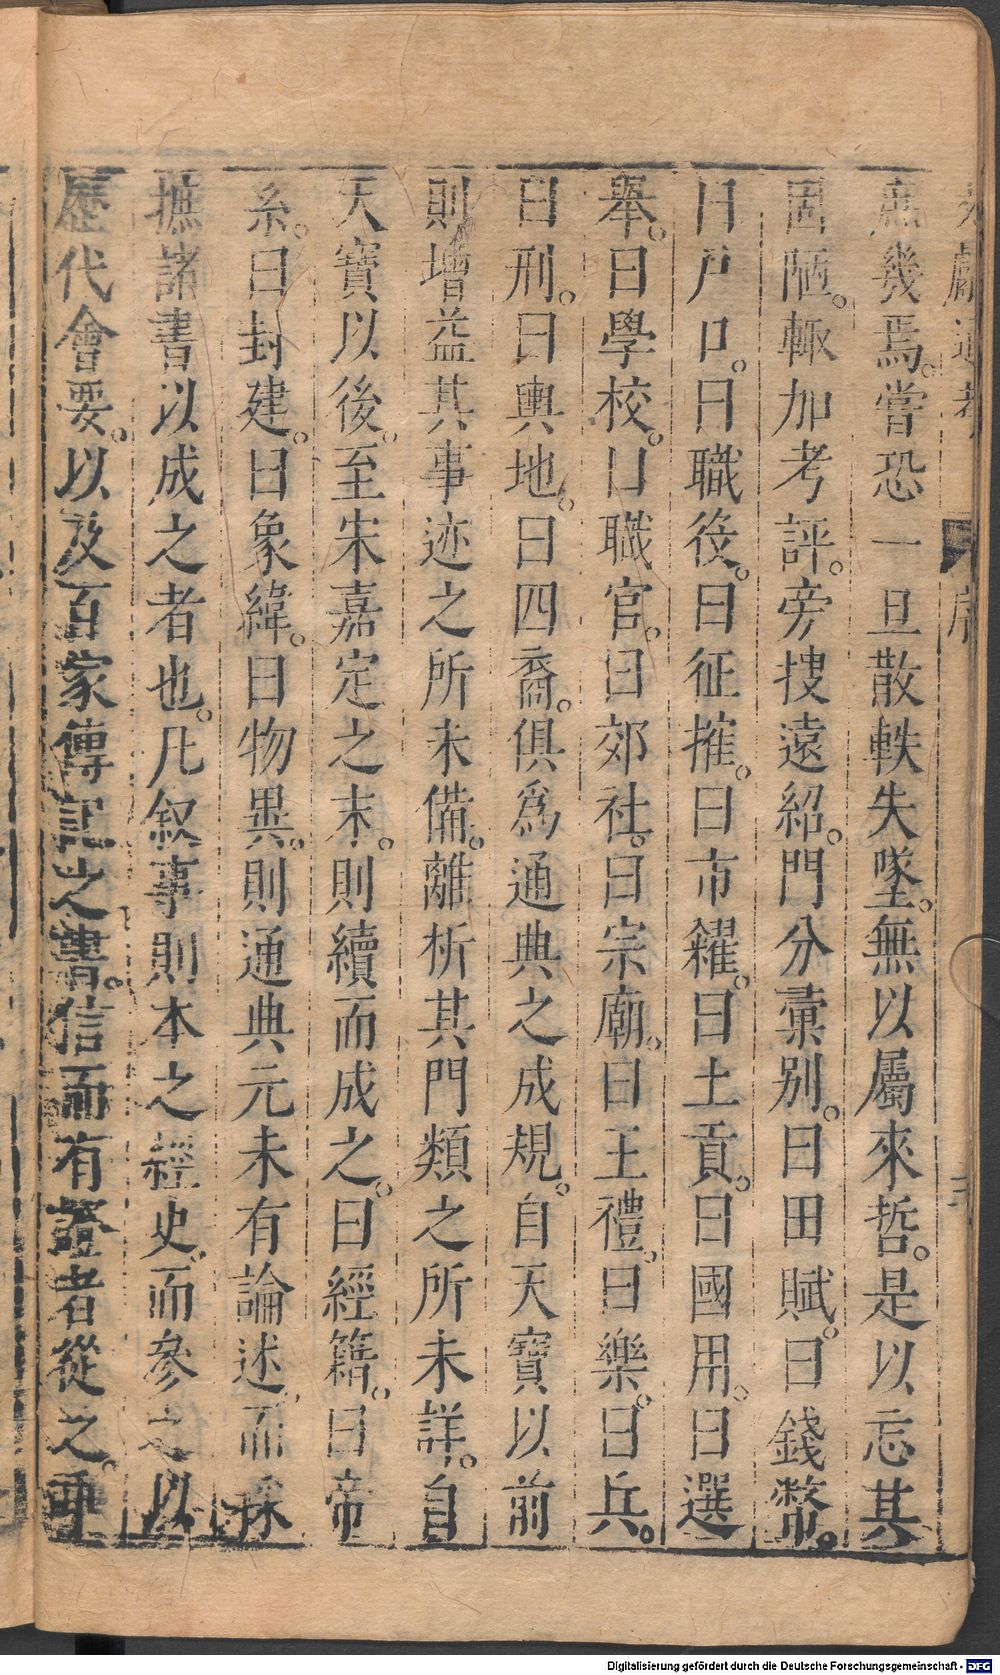 文獻通考 序
庶幾焉。嘗恐一旦散軼失墜。無以屬來哲。是以忘其
固陋。輙加考評。旁搜遠紹。門分彙別。曰田賦。曰錢幣。
曰戶口。曰職役。曰征搉。曰市糴。曰土貢。曰國用。曰選
舉。曰學校。曰職官。曰郊社。曰宗廟。曰王禮。曰樂。曰兵。
曰刑。曰輿地。曰四裔。俱爲通典之成規。自天寶以前
則增益其事迹之所未備。離析其門類之所未詳。自
天寶以後。至宋嘉定之末。則續而成之。曰經籍。曰帝
系。曰封建。曰象緯。曰物異。則通典元未有論述。而採
摭諸書以成之者也。凡叙事則本之經史。而參之以
歷代會要。以及百家傳記之書。信而有證者從之。乖
Digitalisierung gefördert durch die Deutsche Forschungsgemeinschaft - DFG